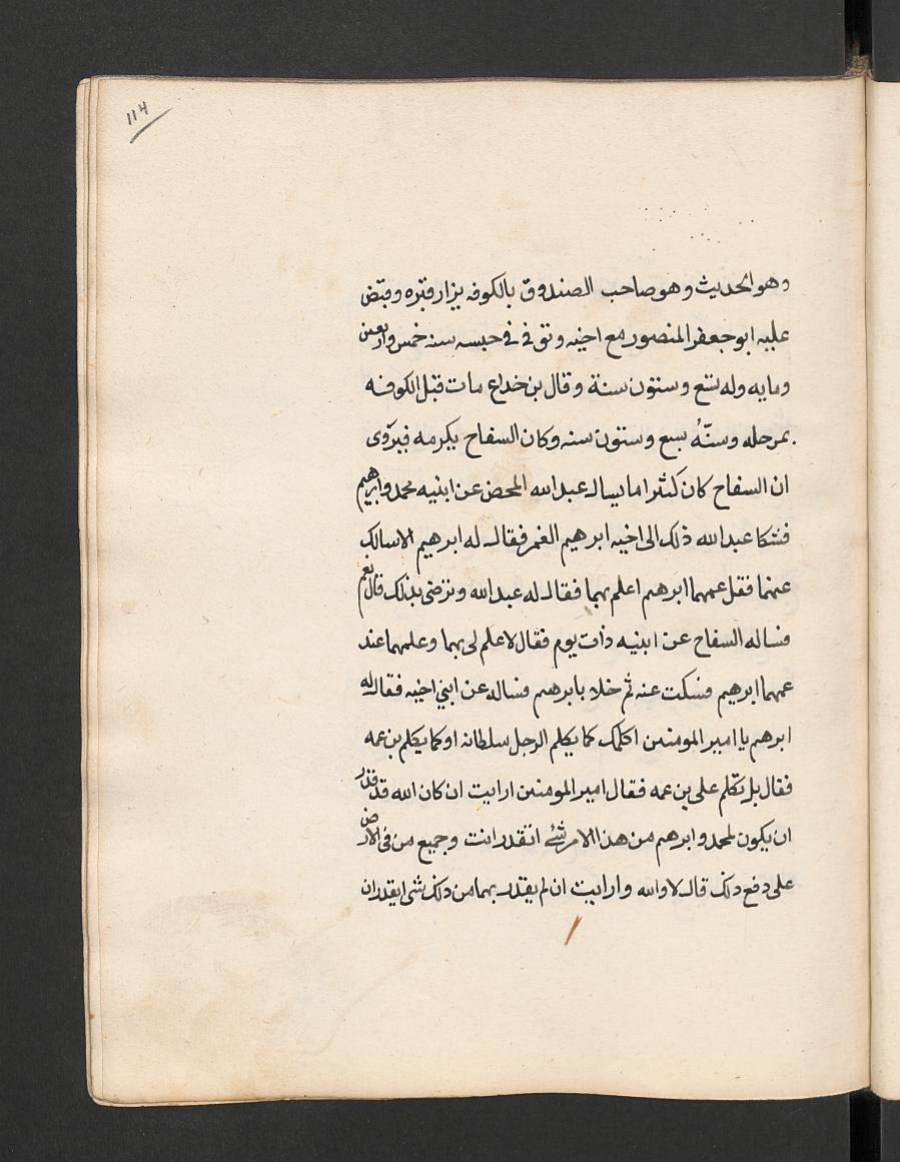 114
وهو الحديث وهو صاحب الصندوق بالكوفه يزار قبره وقبض
عليه ابو جعفر المنصور مع اخيه وتوفي في حبسه سنه خمس واربعين
ومايه وله تسع وستون سنة وقال بن خداع مات قبل الكوفه
بمرحله وسنّهُ سبع وستون سنه وكان السفاح يكرمه فيروى
ان السفاح كان كثيرا ما يسال عبد الله المحض عن ابنيه محمد وابرهيم
فشكا عبد الله ذلك الى اخيه ابرهيم الغمر فقال له ابرهيم اذا سالك
عنهما فقل عمهما ابرهيم اعلم بهما فقال له عبد الله وترضى بذلك قال نعم
فساله السفاح عن ابنيه ذات يوم فقال لا علم لى بهما وعلمهما عند
عمهما ابرهيم فسكت عنه ثم خلا بابرهيم فساله عن ابني اخيه فقال له
ابرهيم يا امير المومنين اكلمك كما يكلم الرجل سلطانه او كما يكلم بن عمه
فقال بل تكلم على بن عمه فقال امير المومنين ارايت ان كان الله قد قدر
ان يكون لمحمد وابرهيم من هذا الامر شئ اتقدر انت وجميع من فى الارض
على دفع ذلك قال لا والله وارايت ان لم يقدر بهما من ذلك شى ايقدران